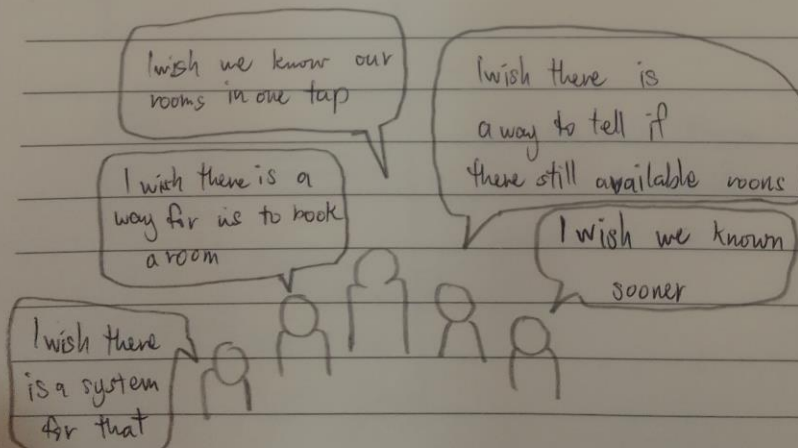 I wish we know our
rooms in one tap
I wish there is
a way to tell if
there still available rooms
I wish there is a
way for us to book
a room
I wish we known
sooner
I wish there
is a system
for that